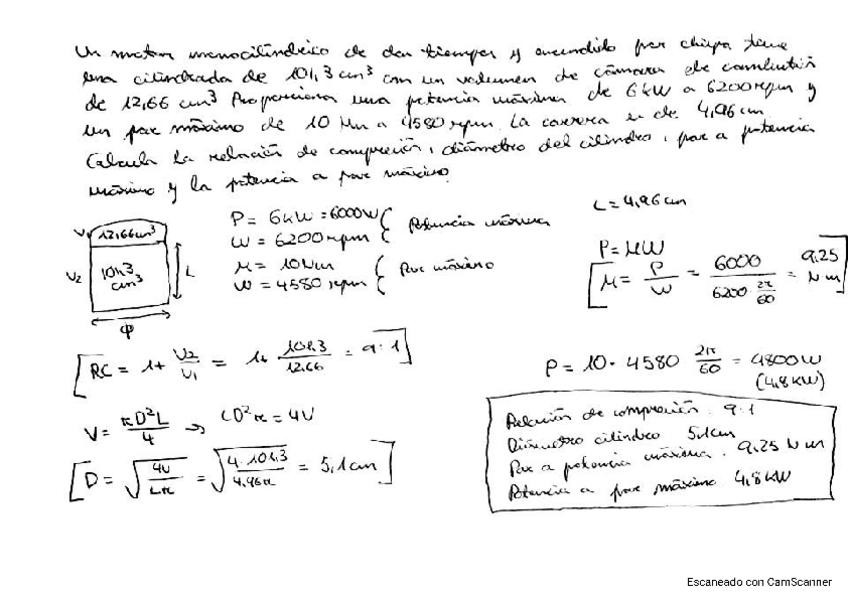 Un motor monocilíndrico de dos tiempos y encendido por chispa tiene
una cilindrada de 101,3 cm³ con un volumen de cámara de combustión
de 12,66 cm³ Proporciona una potencia máxima de 6kW a 6200rpm y
un par máximo de 10 Nm a 4580 rpm. La carrera es de 4,96 cm
Calcula la relación de compresión, diámetro del cilindro, par a potencia
máxima y la potencia a par máximo.
V1 12,66cm³
V2 101,3 cm³ L
φ
P = 6kW = 6000W
W = 6200rpm
Potencia máxima
M = 10Nm
W = 4580 rpm
Par máximo
L = 4,96 cm
P = MW
[M = P/W = 6000 / (6200 · 2π/60) = 9,25 N m]
[RC = 1 + V2/V1 = 1 + 101,3/12,66 = 9:1]
P = 10 · 4580 2π/60 = 4800W
(4,8 kW)
V = πD²L/4 → LD²π = 4V
[D = √(4V/Lπ) = √(4·101,3/4,96π) = 5,1cm]
Relación de compresión 9:1
Diámetro cilindro 5,1cm
Par a potencia máxima. 9,25 N m
Potencia a par máximo 4,8kW
Escaneado con CamScanner